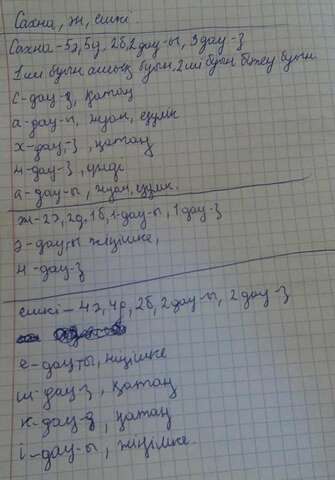 Сахна, ән, ешкі
Сахна-5ә, 5д, 2б, 2дау-ы, 3дау-з
1 ші буын ашық буын, 2 ші буын бітеу буын
С-дау-з, қатаң
а-дау-ы, жуан, езулік
х-дау-з, қатаң
н-дау-з, үнді
а-дау-ы, жуан, езулік.
ән-2ә, 2д, 1б, 1-дау-ы, 1дау-з
ә-дау-ы жіңішке,
н-дау-з
ешкі-4ә, 4р, 2б, 2дау-ы, 2дау-з
е-дау-ты, жіңішке
ш-дау-з, қатаң
к-дау-з, қатаң
і-дау-ы, жіңішке.